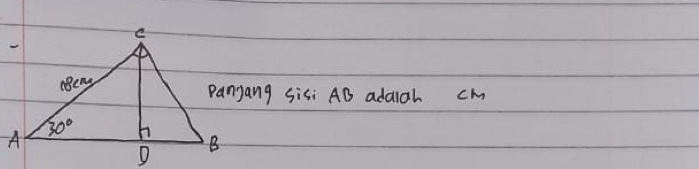 C
08cm
Panjang sisi AB adalah cm
A 30° D B